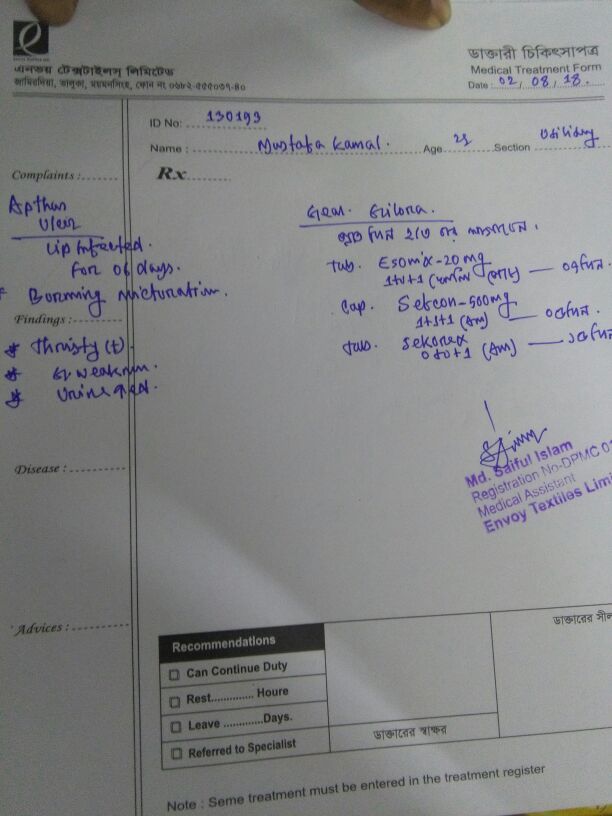 এনভয় টেক্সটাইলস্ লিমিটেড
জামিরদিয়া, ভালুকা, ময়মনসিংহ, ফোন নং ০৬৮২-৫৫৫০৩৭-৪০
ডাক্তারী চিকিৎসাপত্র
Medical Treatment Form
Date : 02/08/18.
ID No: 130193
Name : Mustafa Kamal. Age 29 Section
Complaints :
Rx
Apthas
Ulcer
Lip Infected.
for 06 days.
Borning micturation.
Findings :
Thirsty (+)
weakness.
Urine Red.
Tab. Esomix-20 mg
1+0+1
Cap. Sefcon-500mg
1+1+1
Tab. Sekonex
0+0+1
Md. Saiful Islam
Registration No-DPMC 01
Medical Assistant
Envoy Textiles Limi
Disease :
Advices :
ডাক্তারের সীল
Recommendations
Can Continue Duty
Rest.............. Houre
Leave .............Days.
Referred to Specialist
ডাক্তারের স্বাক্ষর
Note : Seme treatment must be entered in the treatment register